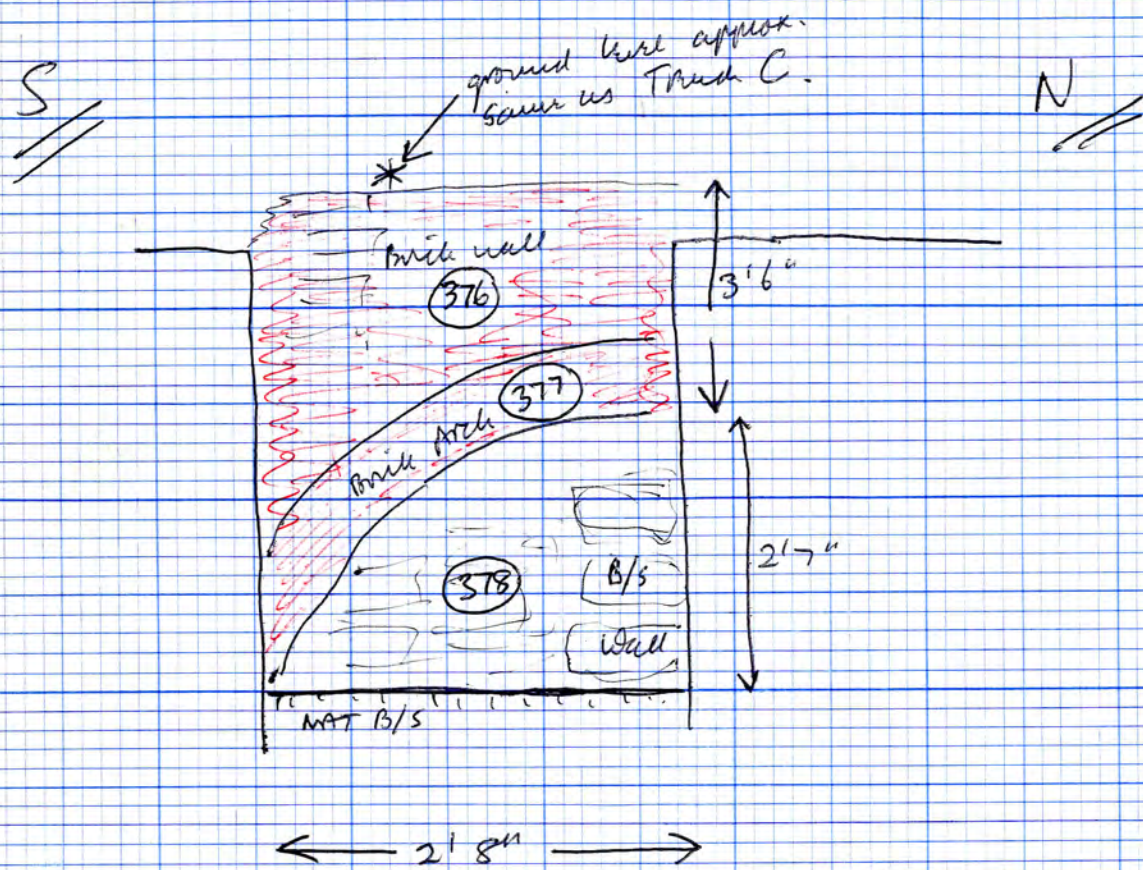 S
ground level approx.
same as Trench C.
N
Brick wall
376
3'6"
377
Brick Arch
2'7"
378
B/S
Wall
NAT B/S
2' 8"